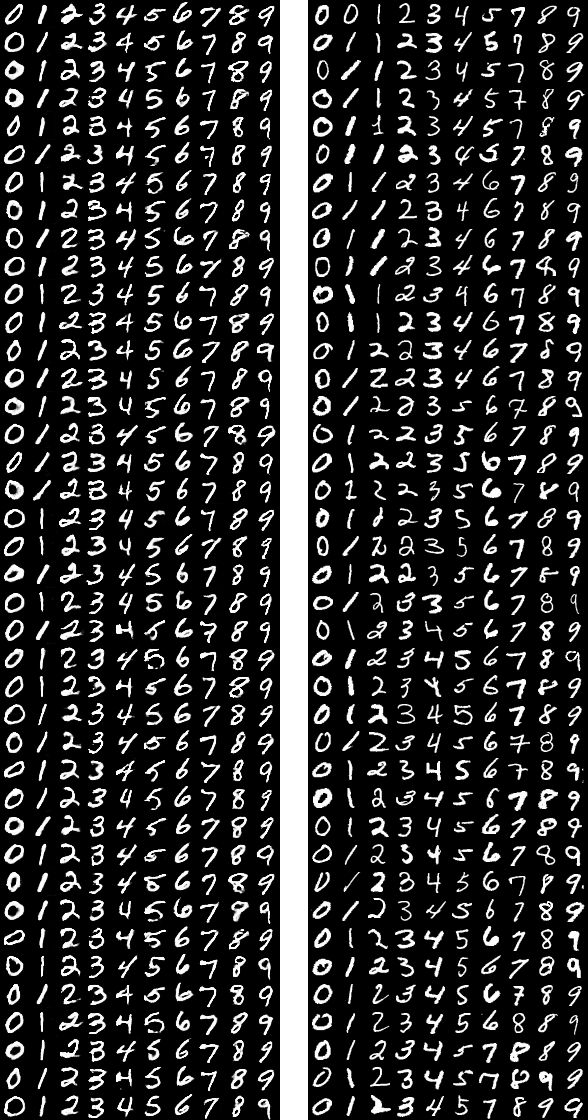 0 1 2 3 4 5 6 7 8 9 0 0 1 2 3 4 5 7 8 9
0 1 2 3 4 5 6 7 8 9 0 1 1 2 3 4 5 7 8 9
0 1 2 3 4 5 6 7 8 9 0 1 1 2 3 4 5 7 8 9
0 1 2 3 4 5 6 7 8 9 0 1 1 2 3 4 5 7 8 9
0 1 2 3 4 5 6 7 8 9 0 1 1 2 3 4 5 7 8 9
0 1 2 3 4 5 6 7 8 9 0 1 1 2 3 4 5 7 8 9
0 1 2 3 4 5 6 7 8 9 0 1 1 2 3 4 6 7 8 9
0 1 2 3 4 5 6 7 8 9 0 1 1 2 3 4 6 7 8 9
0 1 2 3 4 5 6 7 8 9 0 1 1 2 3 4 6 7 8 9
0 1 2 3 4 5 6 7 8 9 0 1 1 2 3 4 6 7 8 9
0 1 2 3 4 5 6 7 8 9 0 1 1 2 3 4 6 7 8 9
0 1 2 3 4 5 6 7 8 9 0 1 1 2 3 4 6 7 8 9
0 1 2 3 4 5 6 7 8 9 0 1 2 2 3 4 6 7 8 9
0 1 2 3 4 5 6 7 8 9 0 1 2 2 3 4 6 7 8 9
0 1 2 3 4 5 6 7 8 9 0 1 2 2 3 5 6 7 8 9
0 1 2 3 4 5 6 7 8 9 0 1 2 2 3 5 6 7 8 9
0 1 2 3 4 5 6 7 8 9 0 1 2 2 3 5 6 7 8 9
0 1 2 3 4 5 6 7 8 9 0 1 2 2 3 5 6 7 8 9
0 1 2 3 4 5 6 7 8 9 0 1 2 2 3 5 6 7 8 9
0 1 2 3 4 5 6 7 8 9 0 1 2 2 3 5 6 7 8 9
0 1 2 3 4 5 6 7 8 9 0 1 2 2 3 5 6 7 8 9
0 1 2 3 4 5 6 7 8 9 0 1 2 3 3 5 6 7 8 9
0 1 2 3 4 5 6 7 8 9 0 1 2 3 4 5 6 7 8 9
0 1 2 3 4 5 6 7 8 9 0 1 2 3 4 5 6 7 8 9
0 1 2 3 4 5 6 7 8 9 0 1 2 3 4 5 6 7 8 9
0 1 2 3 4 5 6 7 8 9 0 1 2 3 4 5 6 7 8 9
0 1 2 3 4 5 6 7 8 9 0 1 2 3 4 5 6 7 8 9
0 1 2 3 4 5 6 7 8 9 0 1 2 3 4 5 6 7 8 9
0 1 2 3 4 5 6 7 8 9 0 1 2 3 4 5 6 7 8 9
0 1 2 3 4 5 6 7 8 9 0 1 2 3 4 5 6 7 8 9
0 1 2 3 4 5 6 7 8 9 0 1 2 3 4 5 6 7 8 9
0 1 2 3 4 5 6 7 8 9 0 1 2 3 4 5 6 7 8 9
0 1 2 3 4 5 6 7 8 9 0 1 2 3 4 5 6 7 8 9
0 1 2 3 4 5 6 7 8 9 0 1 2 3 4 5 6 7 8 9
0 1 2 3 4 5 6 7 8 9 0 1 2 3 4 5 6 7 8 9
0 1 2 3 4 5 6 7 8 9 0 1 2 3 4 5 6 7 8 9
0 1 2 3 4 5 6 7 8 9 0 1 2 3 4 5 6 8 8 9
0 1 2 3 4 5 6 7 8 9 0 1 2 3 4 5 7 8 8 9
0 1 2 3 4 5 6 7 8 9 0 1 2 3 4 5 7 8 9 9
0 1 2 3 4 5 6 7 8 9 0 1 2 3 4 5 7 8 9 0